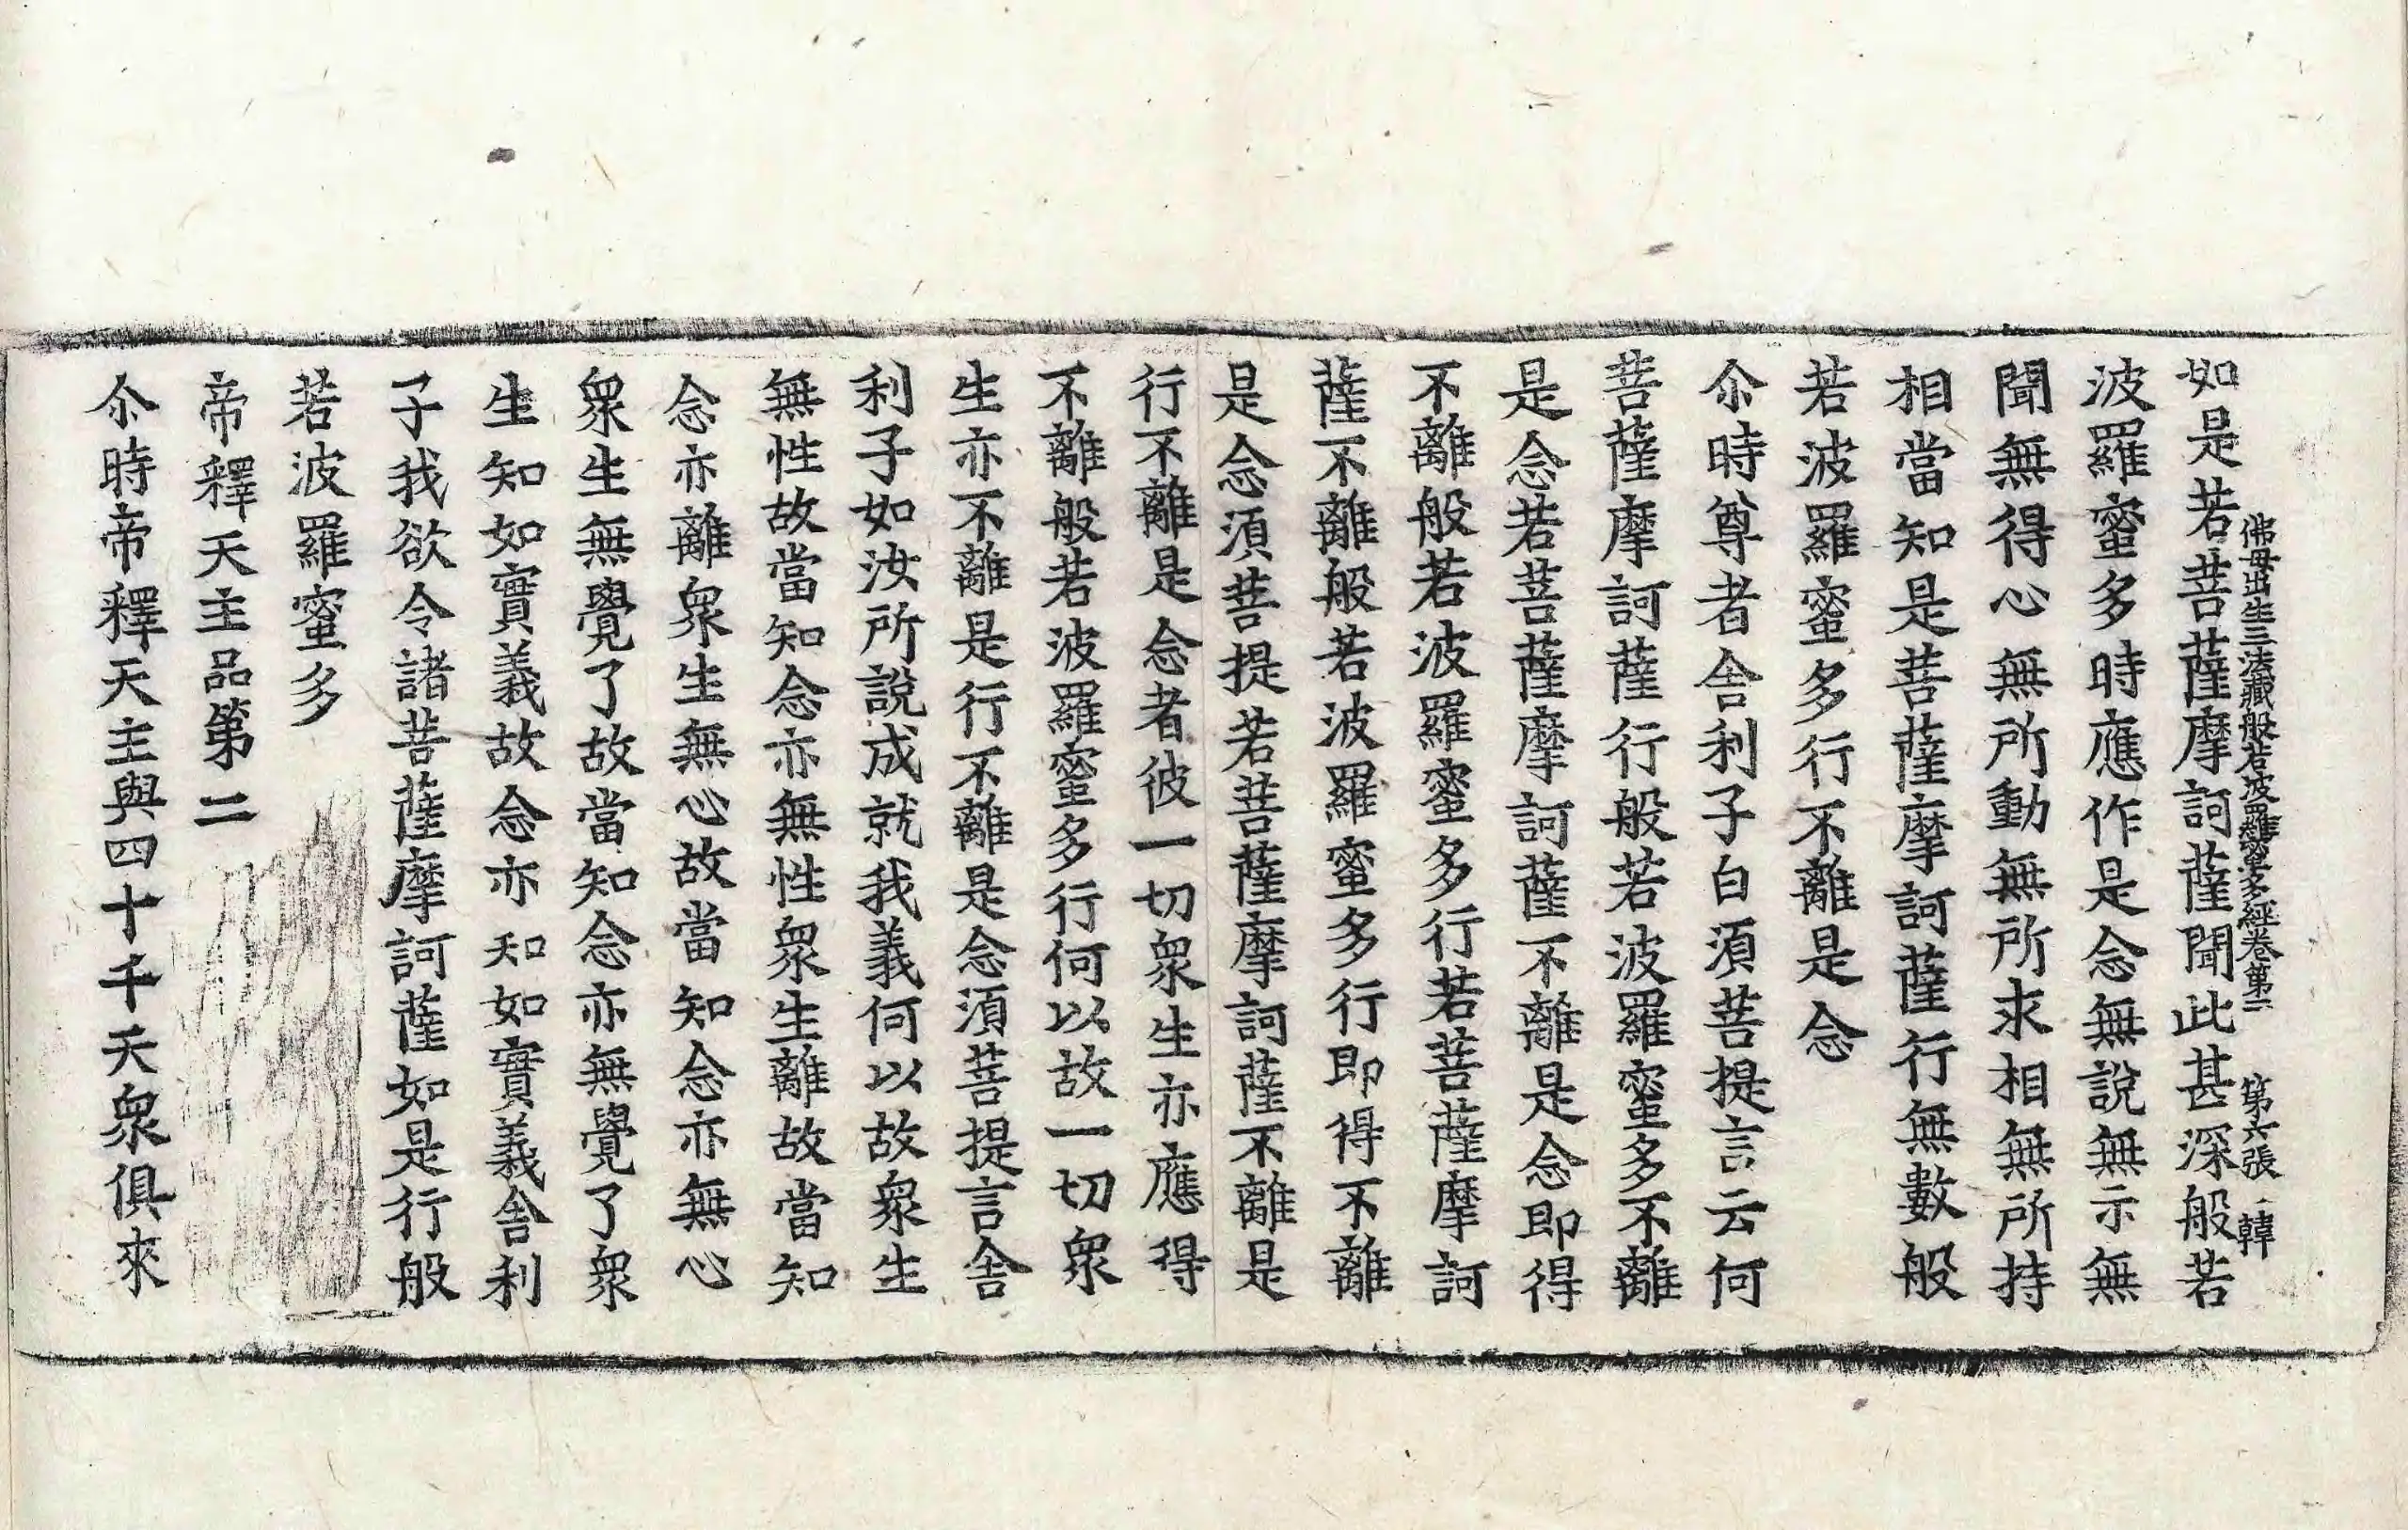 佛母出生三法藏般若波羅蜜多經卷第二 第六張 韓
如是若菩薩摩訶薩聞此甚深般若
波羅蜜多時應作是念無說無示無
聞無得心無所動無所求相無所持
相當知是菩薩摩訶薩行無數般
若波羅蜜多行不離是念
尒時尊者舍利子白須菩提言云何
菩薩摩訶薩行般若波羅蜜多不離
是念若菩薩摩訶薩不離是念即得
不離般若波羅蜜多行若菩薩摩訶
薩不離般若波羅蜜多行即得不離
是念須菩提若菩薩摩訶薩不離是
行不離是念者彼一切眾生亦應得
不離般若波羅蜜多行何以故一切眾
生亦不離是行不離是念須菩提言舍
利子如汝所說成就我義何以故眾生
無性故當知念亦無性眾生離故當知
念亦離眾生無心故當知念亦無心
眾生無覺了故當知念亦無覺了眾
生知如實義故念亦知如實義舍利
子我欲令諸菩薩摩訶薩如是行般
若波羅蜜多
帝釋天主品第二
尒時帝釋天主與四十千天眾俱來